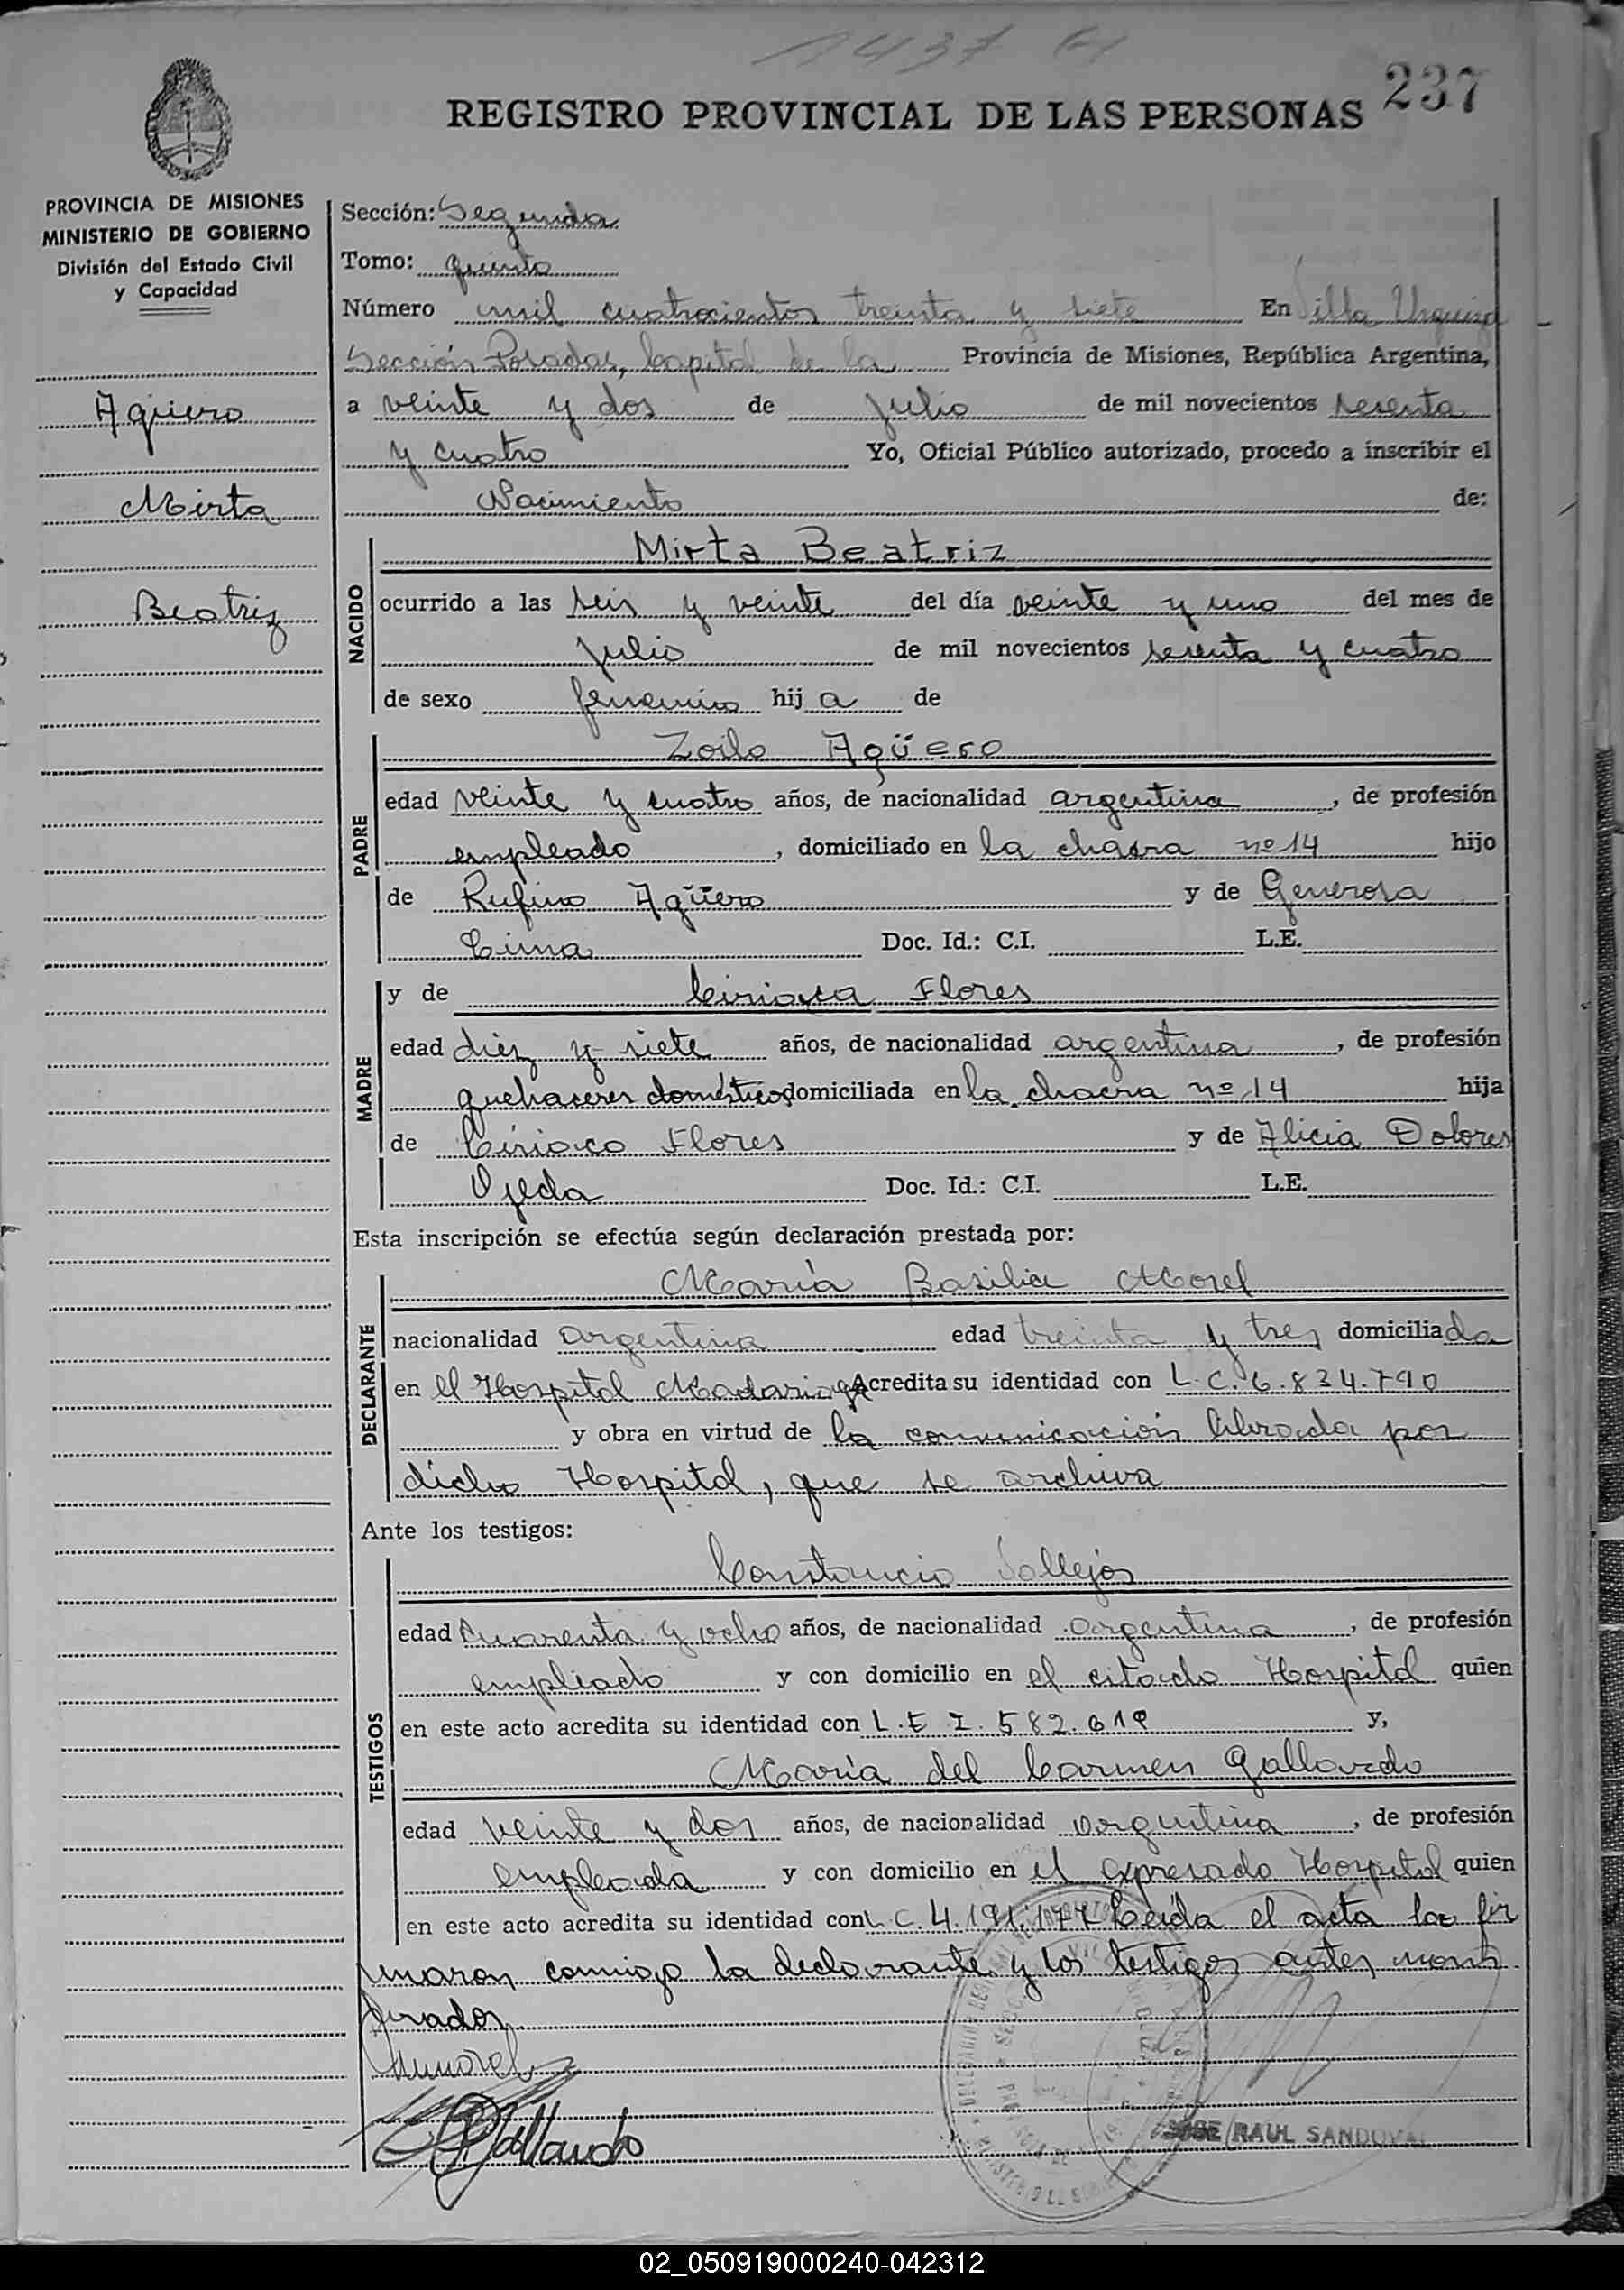 1437 (-)
237
REGISTRO PROVINCIAL DE LAS PERSONAS
PROVINCIA DE MISIONES
MINISTERIO DE GOBIERNO
División del Estado Civil
y Capacidad
Agüero
Mirta
Beatriz
Sección: Segunda
Tomo: quinto
Número mil cuatrocientos treinta y siete En Villa Urquiza
Sección Posadas, Capital de la Provincia de Misiones, República Argentina,
a veinte y dos de Julio de mil novecientos sesenta
y cuatro Yo, Oficial Público autorizado, procedo a inscribir el
Nacimiento de:
NACIDO
Mirta Beatriz
ocurrido a las seis y veinte del día veinte y uno del mes de
Julio de mil novecientos sesenta y cuatro
de sexo femenino hija de
PADRE
Zoilo Agüero
edad veinte y cuatro años, de nacionalidad argentina, de profesión
empleado, domiciliado en la chacra nº 14 hijo
de Rufino Agüero y de Generosa
Cima Doc. Id.: C.I. L.E.
MADRE
y de Ciriaca Flores
edad diez y siete años, de nacionalidad argentina, de profesión
quehaceres domésticos domiciliada en la chacra nº 14 hija
de Ciriaco Flores y de Alicia Dolores
Ojeda Doc. Id.: C.I. L.E.
Esta inscripción se efectúa según declaración prestada por:
DECLARANTE
María Basilia Morel
nacionalidad argentina edad treinta y tres domiciliada
en el Hospital Madariaga Acredita su identidad con L.C. 6.834.790
y obra en virtud de la comunicación librada por
dicho Hospital, que se archiva
Ante los testigos:
TESTIGOS
Constancio Vallejos
edad cuarenta y ocho años, de nacionalidad argentina, de profesión
empleado y con domicilio en el citado Hospital quien
en este acto acredita su identidad con L.E. y,
María del Carmen Gallardo
edad veinte y dos años, de nacionalidad argentina, de profesión
empleada y con domicilio en el expresado Hospital quien
en este acto acredita su identidad con L.C. 4.191.177 Leída el acta la fir
maron conmigo la declarante y los testigos antes
Morel
Gallardo
JOSE RAUL SANDOVAL
02_050919000240-042312